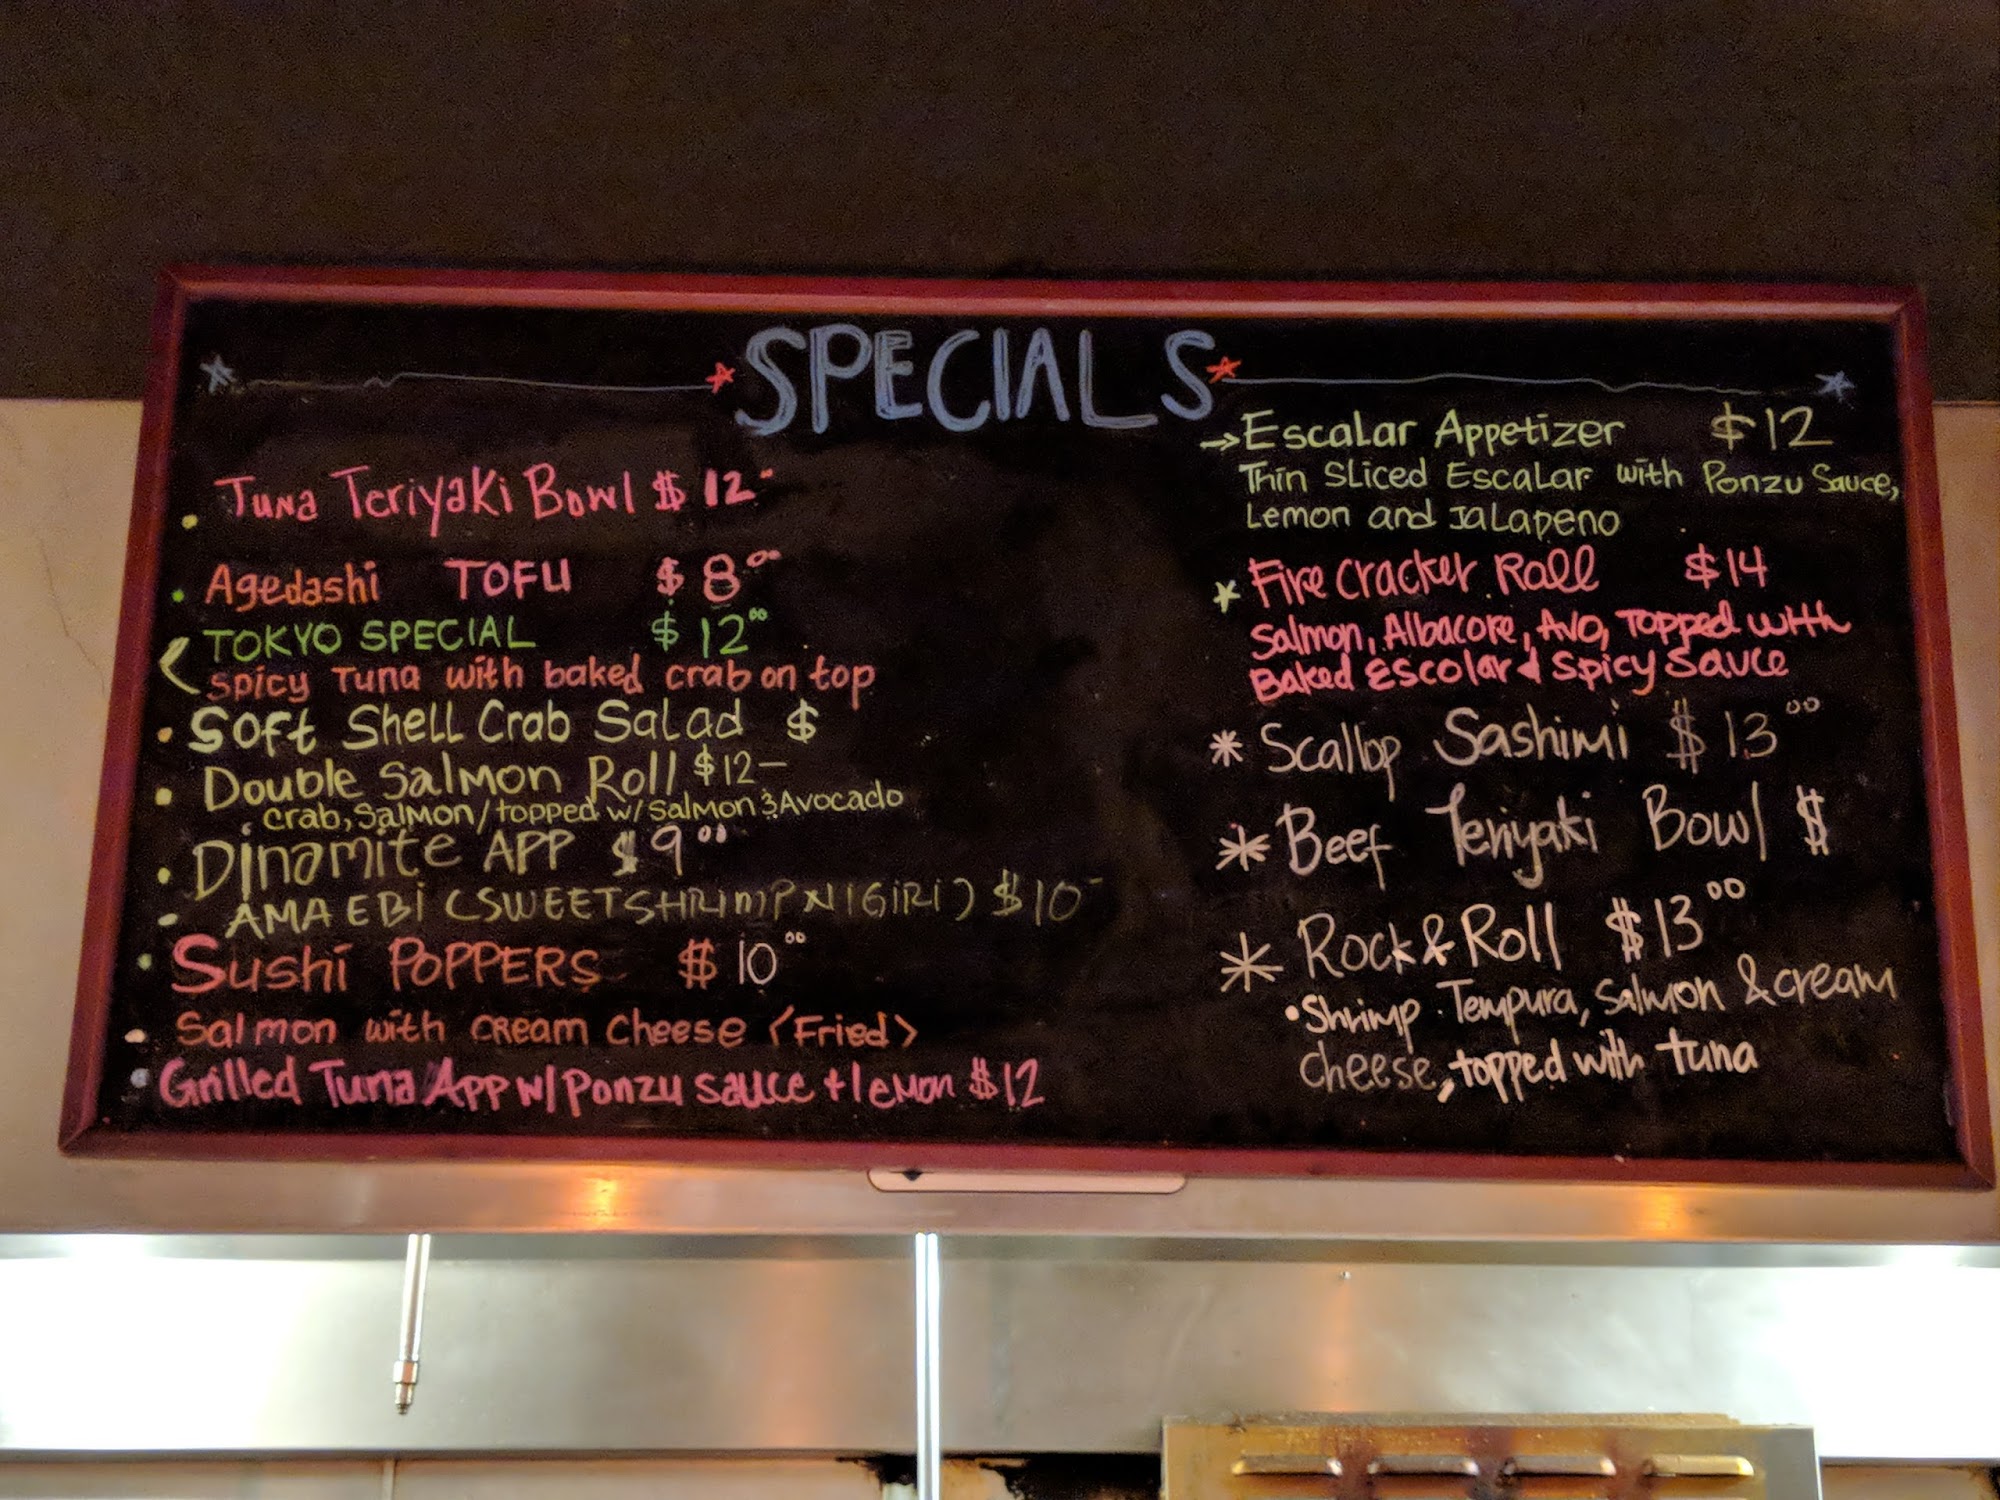 SPECIALS
Tuna Teriyaki Bowl $12-
Agedashi TOFU $8⁰⁰
TOKYO SPECIAL $12⁰⁰
Spicy Tuna with baked crab on top
Soft Shell Crab Salad $
Double Salmon Roll $12-
crab, Salmon/topped w/Salmon & Avocado
Dinamite APP $9⁰⁰
AMA EBI (SWEET SHRIMP NIGIRI) $10-
Sushi POPPERS $10⁰⁰
Salmon with cream cheese <Fried>
Grilled Tuna App w/Ponzu sauce + lemon $12
→Escalar Appetizer $12
Thin Sliced Escalar with Ponzu Sauce,
Lemon and Jalapeno
Fire Cracker Roll $14
Salmon, Albacore, Avo, Topped with
Baked Escolar & Spicy Sauce
* Scallop Sashimi $13⁰⁰
* Beef Teriyaki Bowl $
* Rock & Roll $13⁰⁰
•Shrimp Tempura, Salmon & cream
cheese, topped with tuna